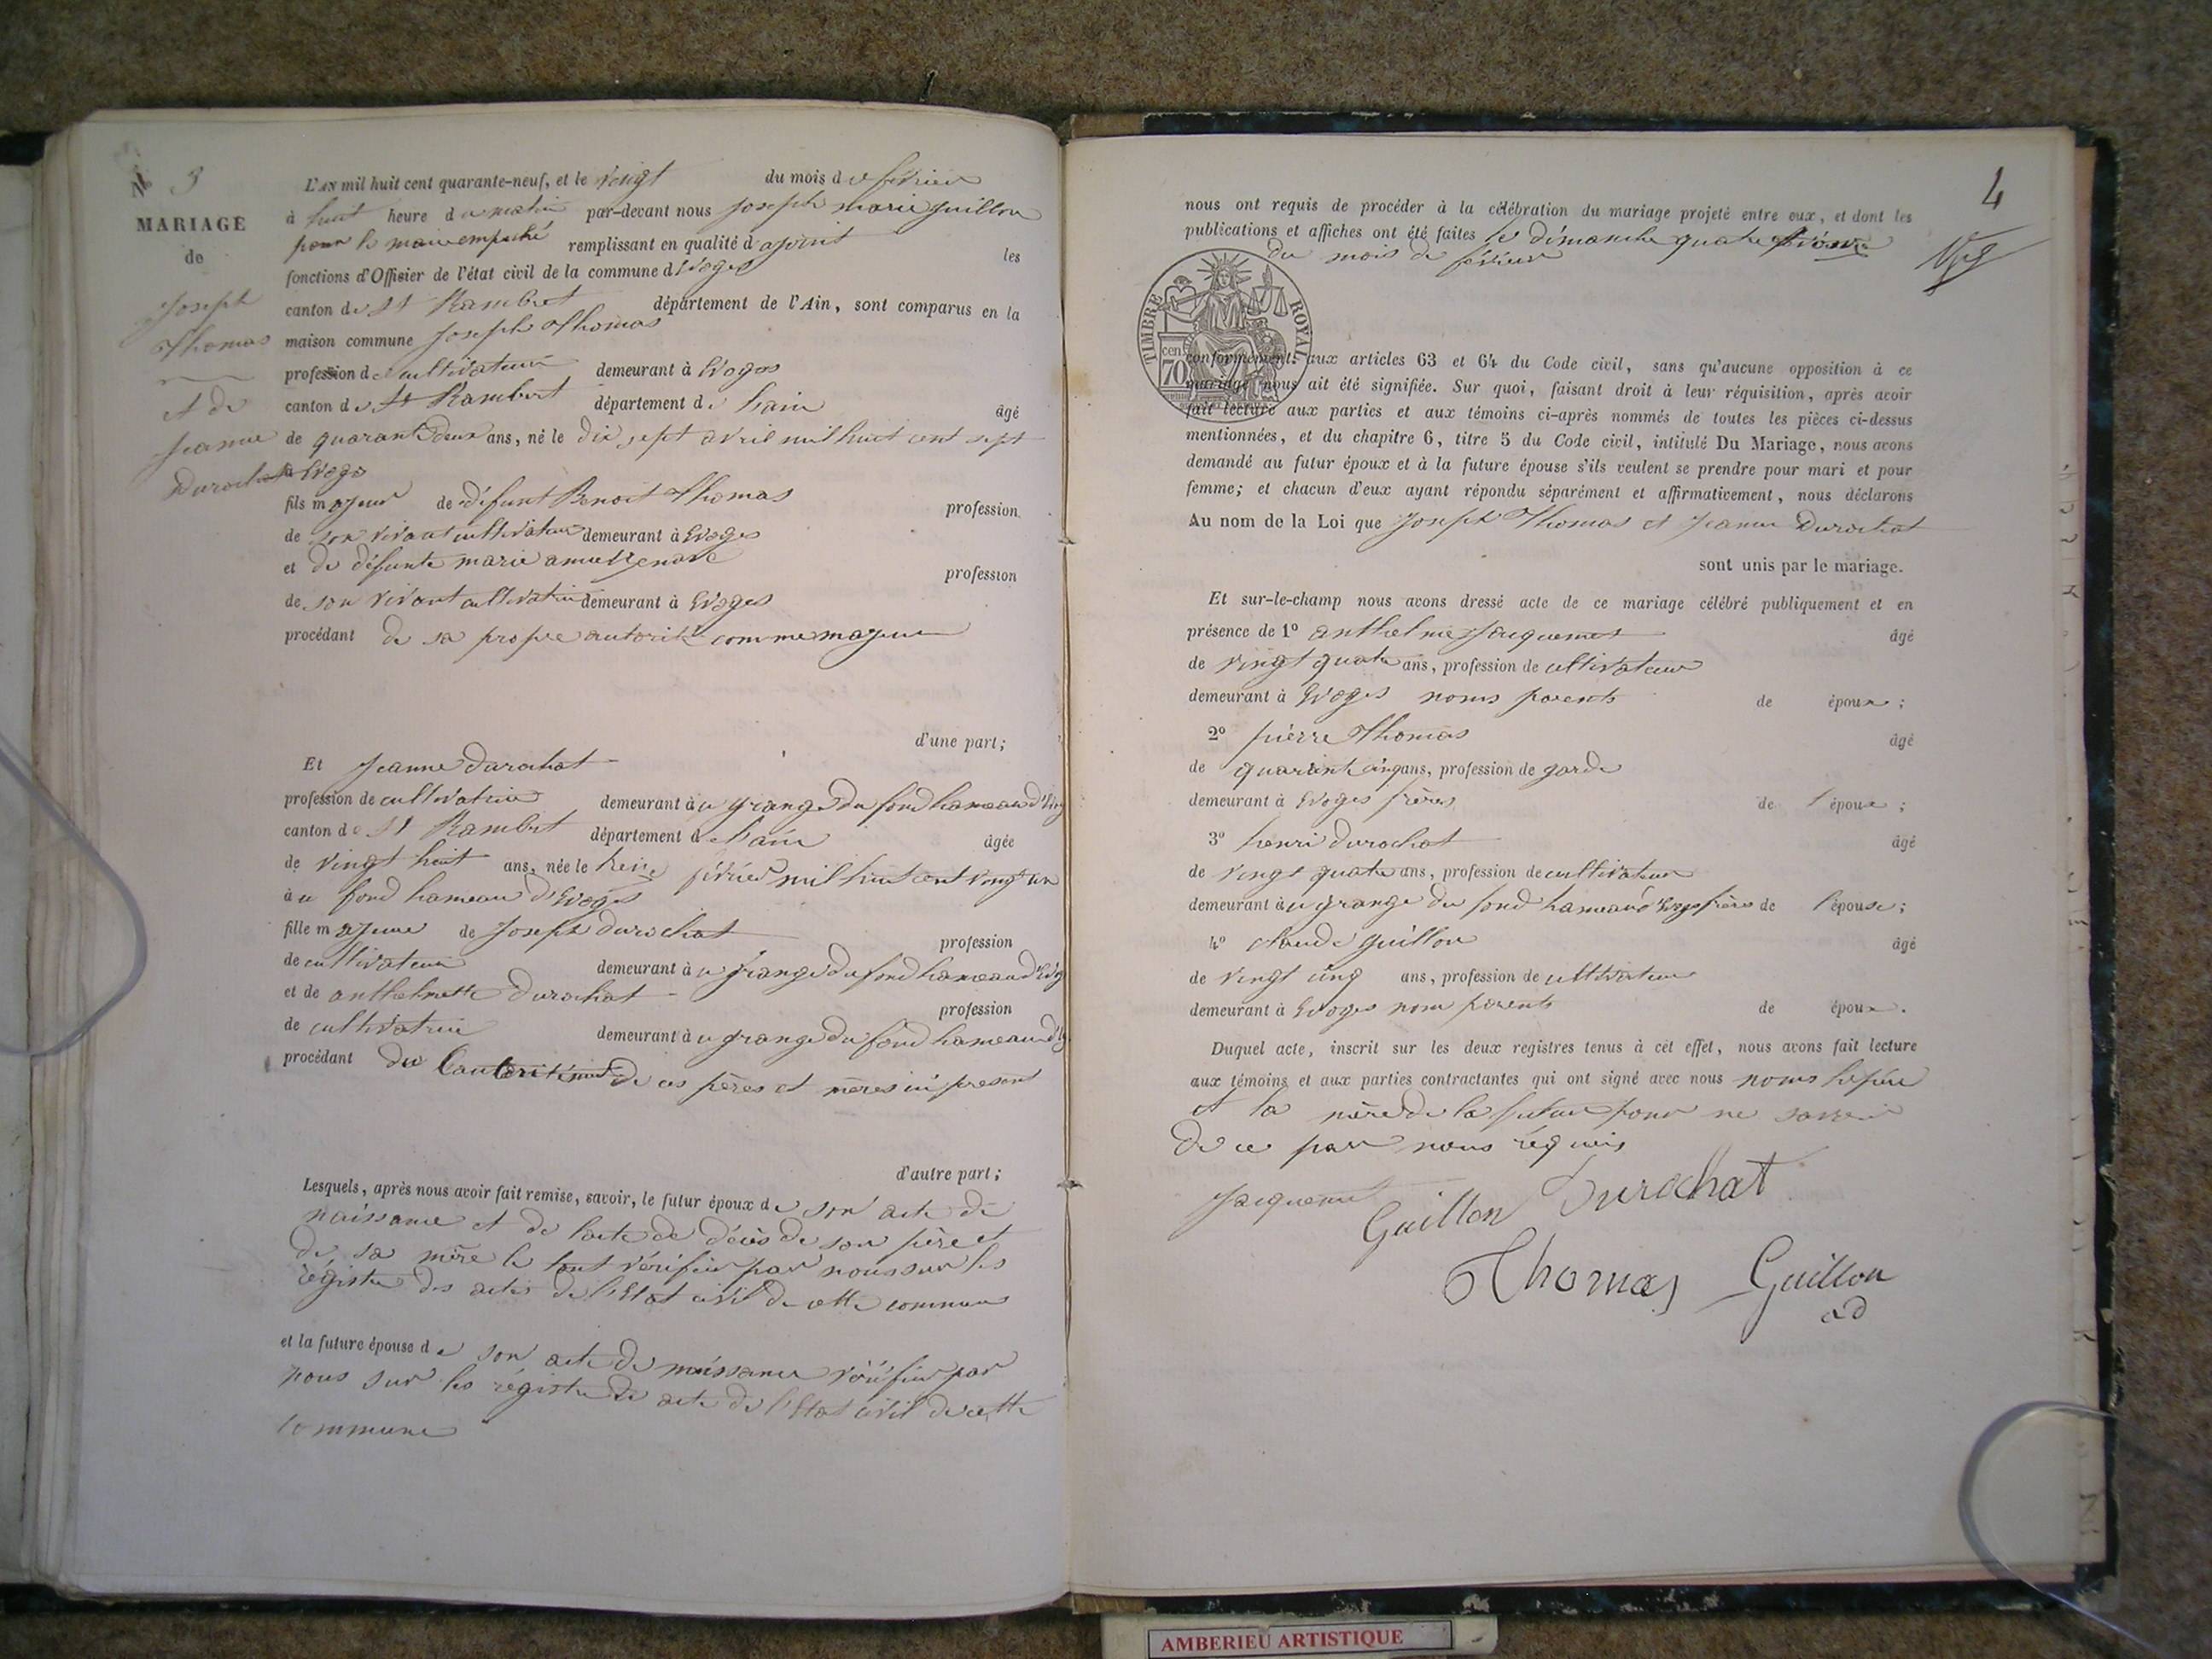 N° 3
MARIAGE
de
Joseph
Thomas
et de
Jeanne
Durochat
L'AN mil huit cent quarante-neuf, et le vingt du mois de février
à huit heure du matin par-devant nous joseph marie guillon
pour le maire empeché remplissant en qualité d'ajoint les
fonctions d'Officier de l'état civil de la commune d'Evoges
canton de St Rambert département de l'Ain, sont comparus en la
maison commune Joseph Thomas
profession de cultivateur demeurant à Evoges
canton de St Rambert département de l'ain âgé
de quarante deux ans, né le dix sept avril mil huit cent sept
à Evoges
fils majeur de défunt Benoit Thomas profession
de son vivant cultivateur demeurant à Evoges
et de défunte marie profession
de son vivant cultivatrice demeurant à Evoges
procédant de sa propre autorité comme majeur
d'une part;
Et Jeanne Durochat
profession de cultivatrice demeurant à u grange du fond hameau d'Evog
canton de St Rambert département de l'ain âgée
de vingt huit ans, née le février mil huit cent vingt un
à u fond hameau d'Evoges
fille majeure de Joseph durochat profession
de cultivateur demeurant à u grange du fond hameau d'Evog
et de anthelmette Durochat profession
de cultivatrice demeurant à u grange du fond hameau d'Ev
procédant de ces pères et mères ici present
d'autre part;
Lesquels, après nous avoir fait remise, savoir, le futur époux de son acte de
naissance et de l'acte de décès de son père et
de sa mère le tout vérifiée par nous sur les
régistre des actes de l'Etat civil de cette commune
et la future épouse de son acte de naissance vérifiée par
nous sur les régistre de acte de l'Etat civil de cette
commune
4
nous ont requis de procéder à la célébration du mariage projeté entre eux, et dont les
publications et affiches ont été faites les dimanche quatre
du mois de février
TIMBRE ROYAL
70 cen.
conformément aux articles 63 et 64 du Code civil, sans qu'aucune opposition à ce
mariage nous ait été signifiée. Sur quoi, faisant droit à leur réquisition, après avoir
fait lecture aux parties et aux témoins ci-après nommés de toutes les pièces ci-dessus
mentionnées, et du chapitre 6, titre 5 du Code civil, intitulé Du Mariage, nous avons
demandé au futur époux et à la future épouse s'ils veulent se prendre pour mari et pour
femme; et chacun d'eux ayant répondu séparément et affirmativement, nous déclarons
Au nom de la Loi que Joseph Thomas et Jeanne Durochat
sont unis par le mariage.
Et sur-le-champ nous avons dressé acte de ce mariage célébré publiquement et en
présence de 1° anthelme Jacquemet âgé
de vingt quatre ans, profession de cultivateur
demeurant à Evoges nons parents de époux;
2° pierre Thomas âgé
de quarante cinq ans, profession de garde
demeurant à Evoges frères de l'époux;
3° henri durochat âgé
de vingt quatre ans, profession de cultivateur
demeurant à u grange du fond hameau d'Evoges frère de l'épouse;
4° claude guillon âgé
de vingt cinq ans, profession de cultivateur
demeurant à Evoges nons parents de époux.
Duquel acte, inscrit sur les deux registres tenus à cet effet, nous avons fait lecture
aux témoins et aux parties contractantes qui ont signé avec nous nons le père
et la mère de la future pour ne savoir
de ce par nous réquis
Jacquemet Guillon Durochat
Thomas Guillon
ad
AMBERIEU ARTISTIQUE